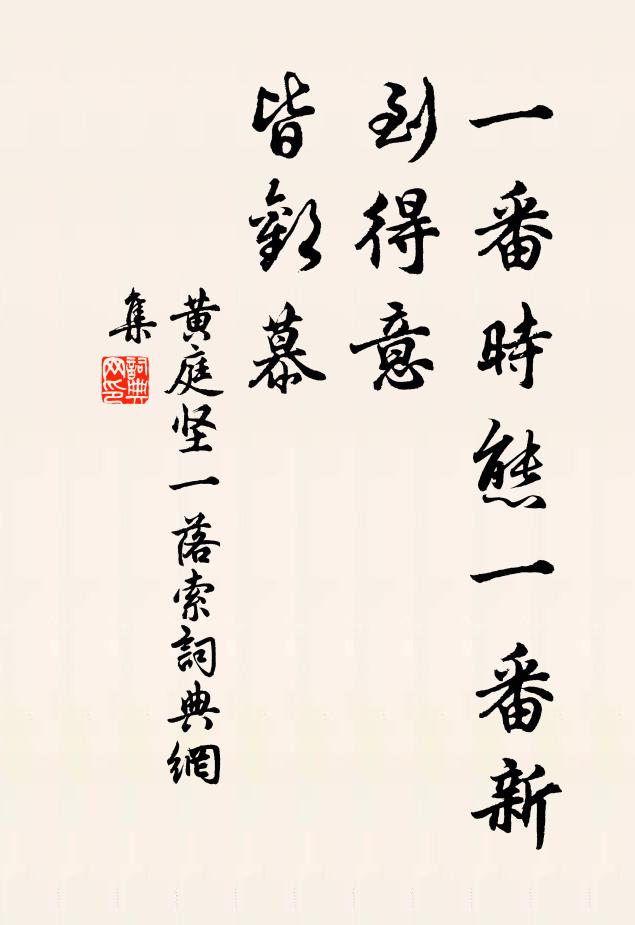 一番時態一番新
到得意
皆歡慕
黄庭坚一落索詞典網
集
詞典网印